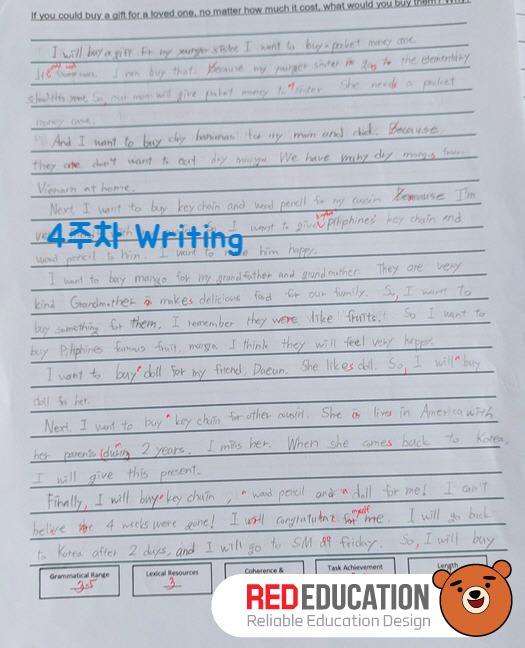 If you could buy a gift for a loved one, no matter how much it cost, what would you buy them? Why?
I will buy a gift for my younger sister I want to buy a pocket money case.
I can buy that. Because my younger sister is to the elementary
school this year. So, our mom will give pocket money to sister. She needs a pocket
money case.
And I want to buy dry bananas for my mom and dad. Because
they are don't want to eat dry mango. We have many dry mangos from
Vienam at home.
Next I want to buy key chain and wood pencil for my cousin Because I'm
I want to give Piliphines key chain and
4주차 Writing
wood pencil to him. I want to him happy.
I want to buy mango for my grandfather and grandmother. They are very
kind Grandmother is makes delicious food for our family. So, I want to
buy something for them. I remember they were like fruits. So I want to
buy Piliphines famous fruit, mango. I think they will feel very happy.
I want to buy a doll for my friend, Daeun. She likes doll. So, I will a buy
doll for her.
Next. I want to buy a key chain for other cousin. She is lives in America with
her parents during 2 years. I miss her. When she comes back to Korea,
I will give this present.
Finally, I will buy a key chain, a wood pencil and a doll for me! I can't
believe the 4 weeks were gone! I will congratulate for me. myself I will go back
to Korea after 2 days, and I will go to SM at friday. So, I will buy
Grammatical Range
3.5
Lexical Resources
3
Coherence &
Task Achievement
Length
RED EDUCATION
Reliable Education Design